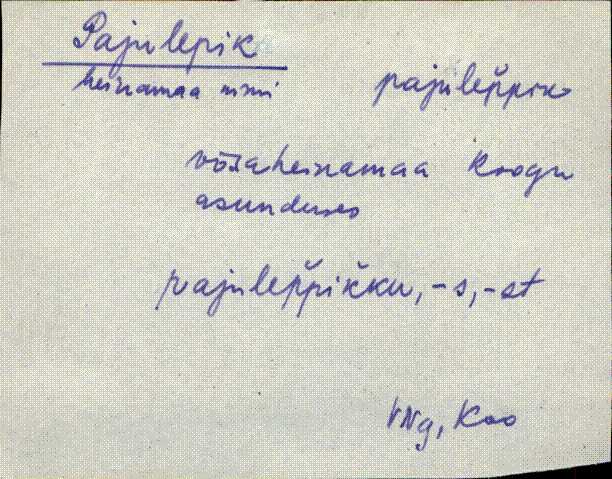 Pajulepik
heinamaa nimi pajulep̌pik
võsaheinamaa Koogu
asunduses
pajulep̌pik̆ku, -s, -st
VNg, Koo